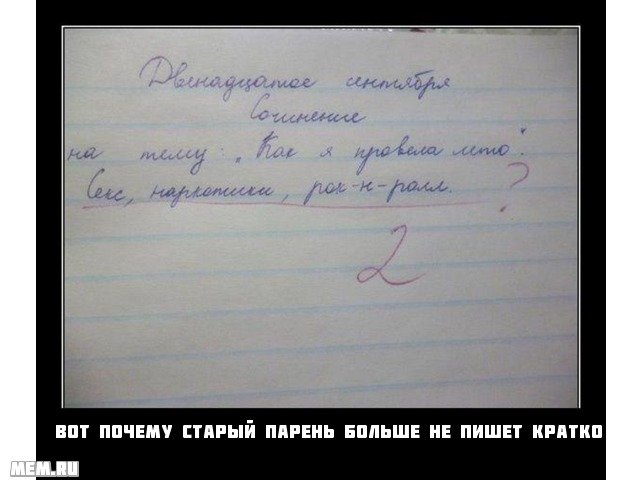 Двенадцатое сентября
Сочинение
на тему: „Как я провела лето".
Секс, наркотики, рок-н-ролл. ?
2
ВОТ ПОЧЕМУ СТАРЫЙ ПАРЕНЬ БОЛЬШЕ НЕ ПИШЕТ КРАТКО
MEM.RU